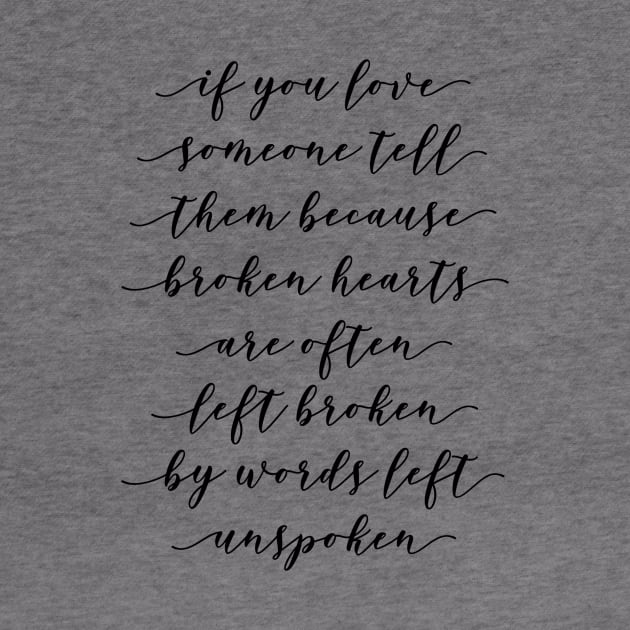 if you love
someone tell
them because
broken hearts
are often
left broken
by words left
unspoken